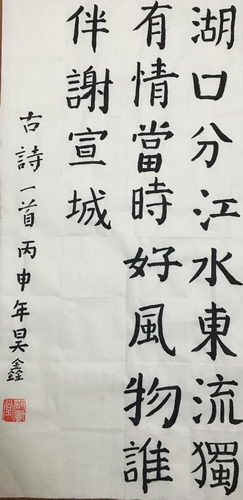 湖口分江水東流獨
有情當時好風物誰
伴謝宣城
古詩一首丙申年昊鑫